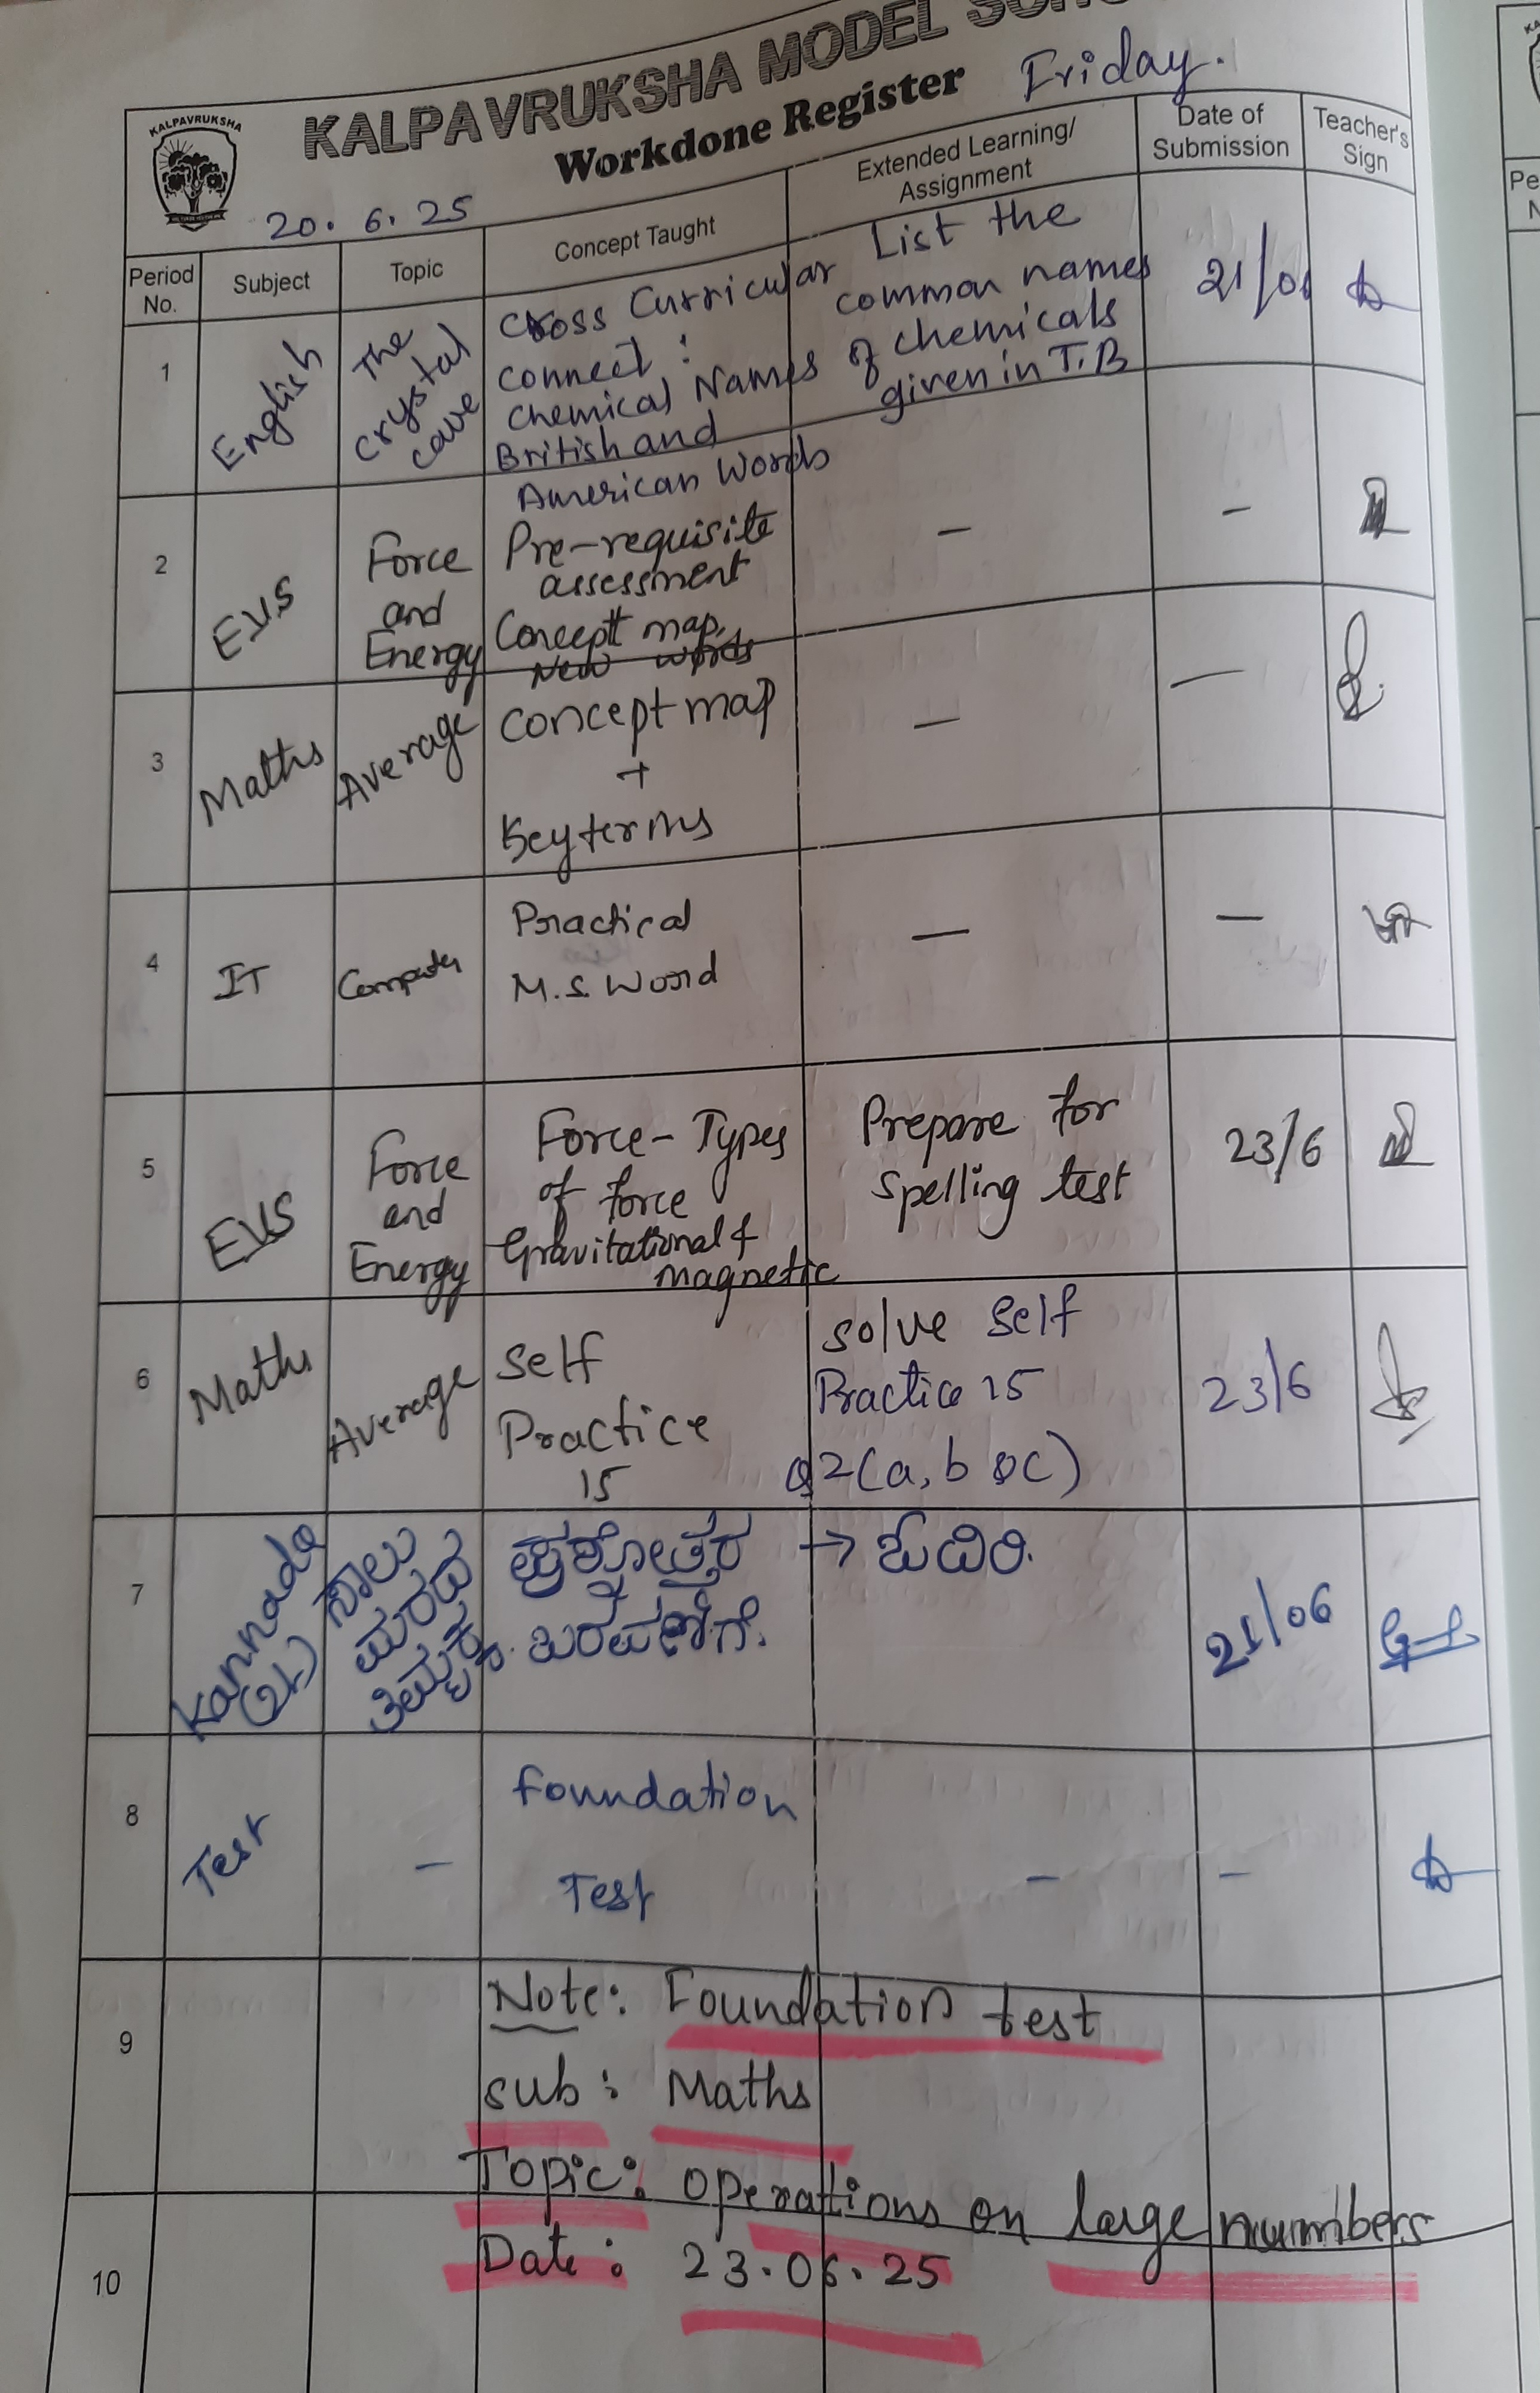 KALPAVRUKSHA MODEL
Workdone Register
Friday.
KALPAVRUKSHA
20. 6. 25
Period No.
Subject
Topic
Concept Taught
Extended Learning/ Assignment
Date of Submission
Teacher's Sign
1
English
The crystal cave
Cross Curricular
connect :
Chemical Names
British and
American Words
List the
common names
of chemicals
given in T.B
21/06
2
EVS
Force and Energy
Pre-requisite
assessment
Concept map,
New words
—
-
3
Maths
Average
Concept map
+
Key terms
—
—
4
IT
Computer
Practical
M.S. Word
—
—
5
EVS
Force and Energy
Force - Types
of force
Gravitational &
magnetic
Prepare for
Spelling test
23/6
6
Maths
Average
Self
Practice
15
solve Self
Practice 15
Q2(a, b & c)
23/6
7
Kannada
(2L)
ಸಾಲು
ಮರದ
ತಿಮ್ಮಕ್ಕ.
ಪ್ರಶ್ನೋತ್ತರ
ಬರೆವಣಿಗೆ.
→ ಓದಿರಿ.
21/06
8
Test
-
Foundation
Test
-
-
9
Note: Foundation test
Sub: Maths
Topic: Operations on large numbers
10
Date: 23.06.25